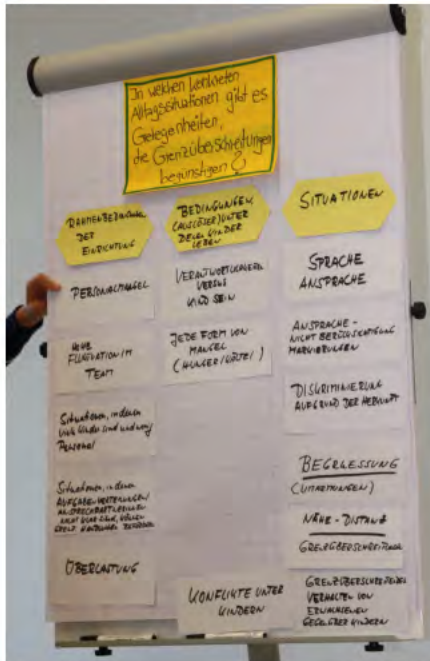 In welchen konkreten
Alltagssituationen gibt es
Gelegenheiten,
die Grenzüberschreitungen
begünstigen?
RAHMENBEDINGUNGEN
DER
EINRICHTUNG
PERSONALMANGEL
HOHE
FLUKTUATION IM
TEAM
Situationen, in denen
viele Kinder sind und wenig
Personal
Situationen, in denen
AUFGABENVERTEILUNGEN/
NICHT KLAR SIND,
ÜBERLASTUNG
BEDINGUNGEN
(AUSLÖSER) UNTER
DENEN KINDER
LEBEN
VERANTWORTLICH
VERSUS
KIND SEIN
JEDE FORM VON
MANGEL
(HUNGER/KÄLTE)
KONFLIKTE UNTER
KINDERN
SITUATIONEN
SPRACHE
ANSPRACHE
ANSPRACHE -
NICHT BERÜCKSICHTIGUNG
MARKIERUNGEN
DISKRIMINIERUNG
AUFGRUND DER HERKUNFT
BEGRUESSUNG
(UMARMUNGEN)
NÄHE - DISTANZ
GRENZÜBERSCHREITUNG
GRENZÜBERSCHREITENDES
VERHALTEN VON
ERWACHSENEN
GEGENÜBER KINDERN